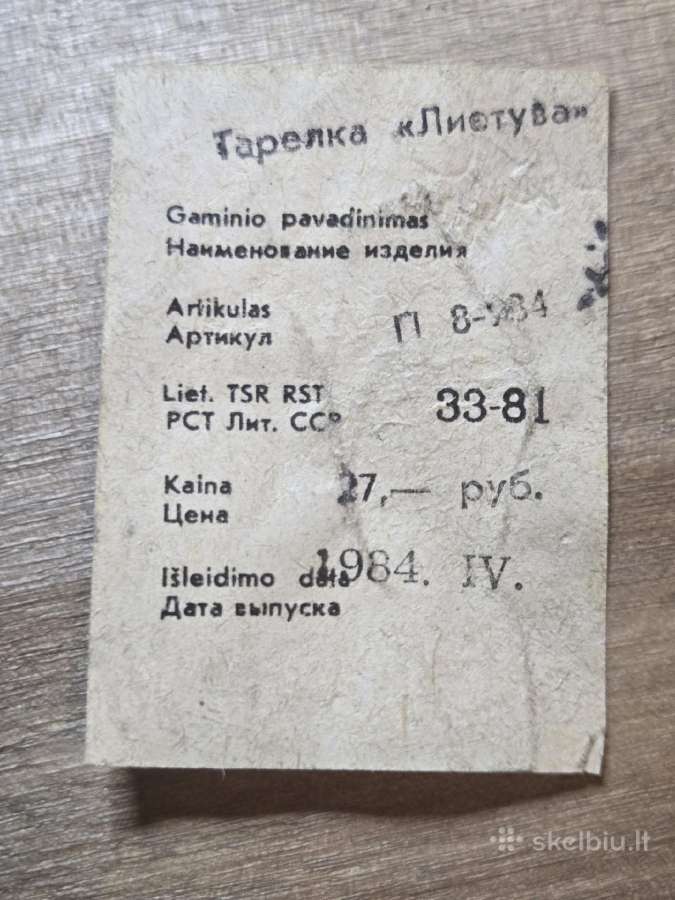 Тарелка «Лиетува»
Gaminio pavadinimas
Наименование изделия
Artikulas
Артикул
П 8-984
Liet. TSR RST
РСТ Лит. ССР
33-81
Kaina
Цена
27,— руб.
Išleidimo data
Дата выпуска
1984. IV.
skelbiu.lt